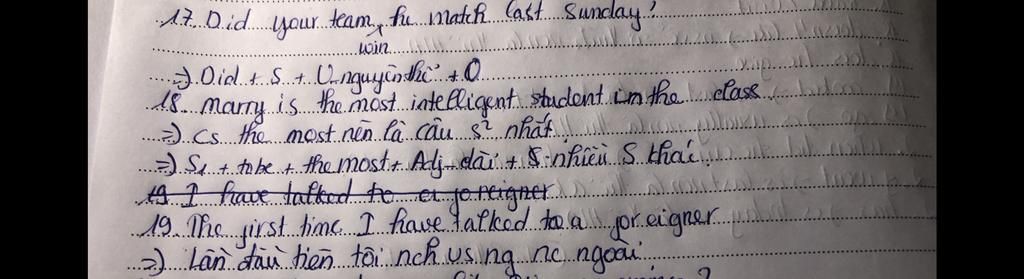 17. Did your team the match last Sunday?
win
=) Did + S + V.nguyên thể + O
18. marry is the most intelligent student in the class
=) Cs the most nên là câu s² nhất
=) S1 + tobe + the most + Adj dài + S nhiều S khác
19 I have talked to a foreigner
19. The first time I have talked to a foreigner
=) Lần đầu tiên tôi nch vs ng nc ngoài